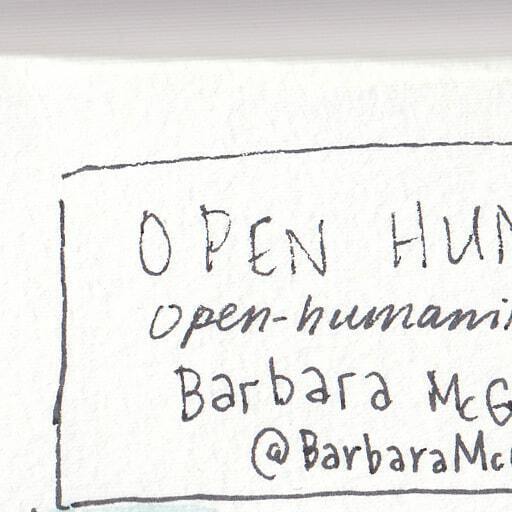 OPEN HUM
Open-humani
Barbara McG
@BarbaraMcG